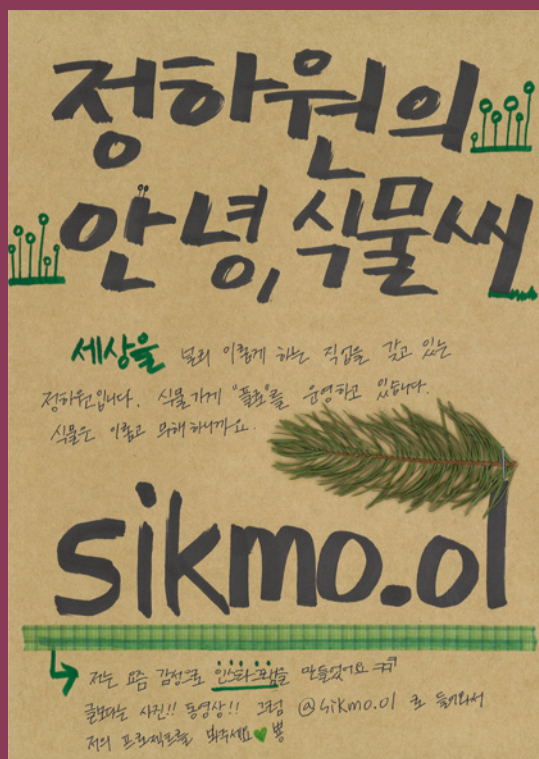 정하원의
안녕, 식물씨
세상을 널리 이롭게 하는 직업을 갖고 있는
정하원입니다. 식물가게 "플로"를 운영하고 있습니다.
식물은 이롭고 무해하니까요.
sikmo.ol
저는 요즘 감정으로 인스타그램을 만들었어요
글보다는 사진!! 동영상!! 그럼 @sikmo.ol 로 들어와서
저의 프로젝트를 봐주세요 뿅